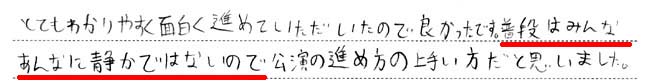 とてもわかりやすく面白く進めていただいたので良かったです。普段はみんな
あんなに静かではないので公演の進め方の上手い方だと思いました。